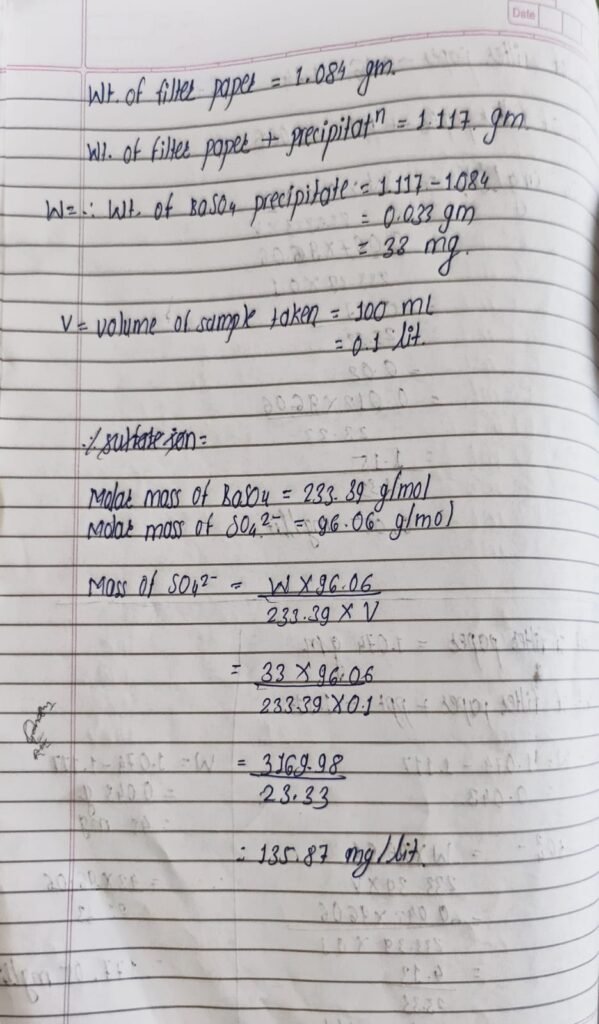 Date
Wt. of filter paper = 1.084 gm.
Wt. of filter paper + precipitatⁿ = 1.117 gm
W= ∴ Wt. of BaSO4 precipitate = 1.117 - 1.084
= 0.033 gm
= 33 mg.
V = volume of sample taken = 100 ml
= 0.1 lit.
% sulfate ion =
Molar mass of BaSO4 = 233.39 g/mol
Molar mass of SO4²⁻ = 96.06 g/mol
Mass of SO4²⁻ = W X 96.06
233.39 X V
= 33 X 96.06
233.39 X 0.1
= 3169.98
23.33
= 135.87 mg/lit.